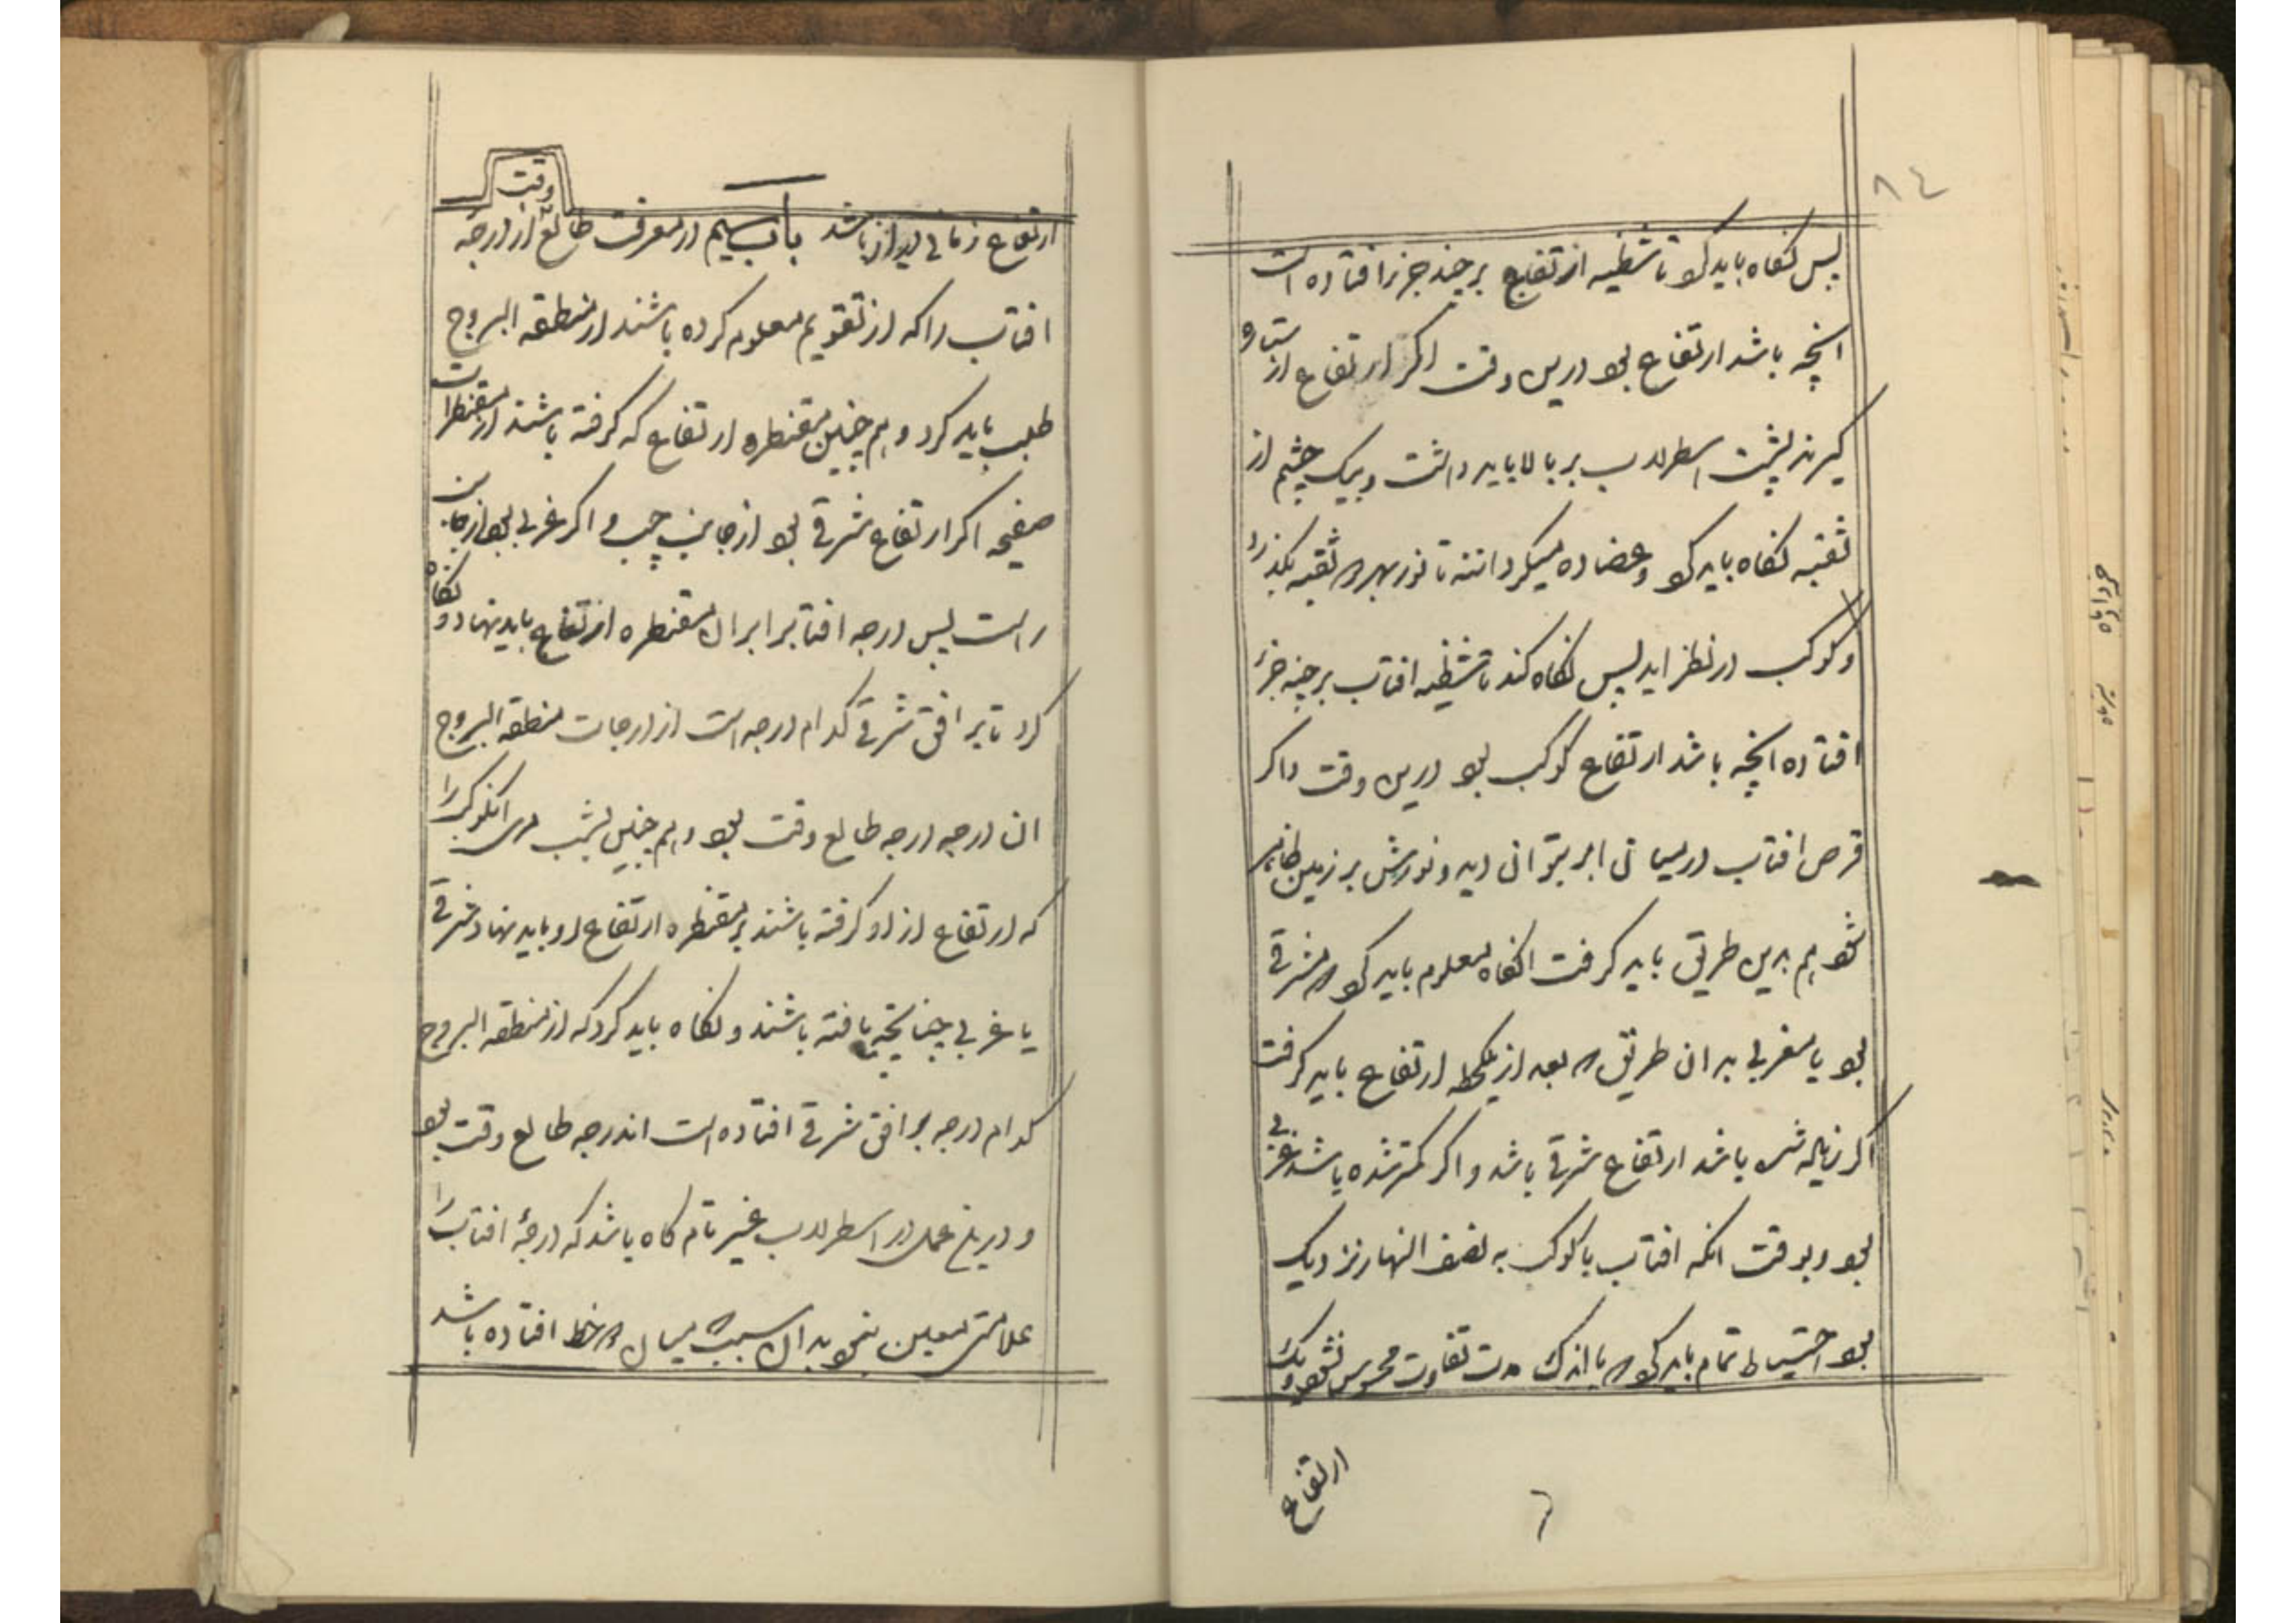 ٨٤
پس نگاه باید کرد تا شظیه ارتفاع بر چند جزء افتاده است
انچه باشد ارتفاع بود درین وقت و اگر ارتفاع از ستاره
گیرند پشت اسطرلاب بر بالا باید داشت و بیک چشم از
ثقبه نگاه باید کرد و عضاده میگردانند تا نور بهر دو ثقبه بگذرد
و کوکب در نظر اید پس نگاه کند تا شظیه افتاب بر چند جزء
افتاده انچه باشد ارتفاع کوکب بود درین وقت و اگر
قرص افتاب در میان ابر بتوان دید و نورش بر زمین ظاهر
نشود هم بدین طریق باید گرفت انگاه معلوم باید کرد که مشرقی
بود یا مغربی بدان طریق که بعد از یک لحظه ارتفاع باید گرفت
اگر زیاده شده باشد ارتفاع شرقی باشد و اگر کمتر شده باشد غربی
بود و بوقت انکه افتاب یا کوکب به نصف النهار نزدیک
بود احتیاط تمام باید کرد که باندک مدت تفاوت محسوس نشود و یک
ارتفاع
٦
ارتفاع زمانی دراز باشد باب سیم در معرفت طالع وقت از درجه
افتاب را که از تقویم معلوم کرده باشند از منطقه البروج
طلب باید کرد و هم چنین مقنطره ارتفاع که گرفته باشند از مقنطرات
صفیحه اگر ارتفاع شرقی بود از جانب چپ و اگر غربی بود از جانب
راست پس درجه افتاب برابر ان مقنطره ارتفاع باید نهاد و نگاه
کرد تا بر افق شرقی کدام درجه است از درجات منطقه البروج
ان درجه درجه طالع وقت بود و هم چنین بشب مری انکوکب را
که ارتفاع از او گرفته باشند بر مقنطره ارتفاع او باید نهاد شرقی
یا غربی چنانچه یافته باشند و نگاه باید کرد که از منطقه البروج
کدام درجه بر افق شرقی افتاده است اندرجه طالع وقت بود
و درین عمل در اسطرلاب غیر تام گاه باشد که درجهٔ افتاب را
علامتی معین نبود بدان سبب که میان دو خط افتاده باشد